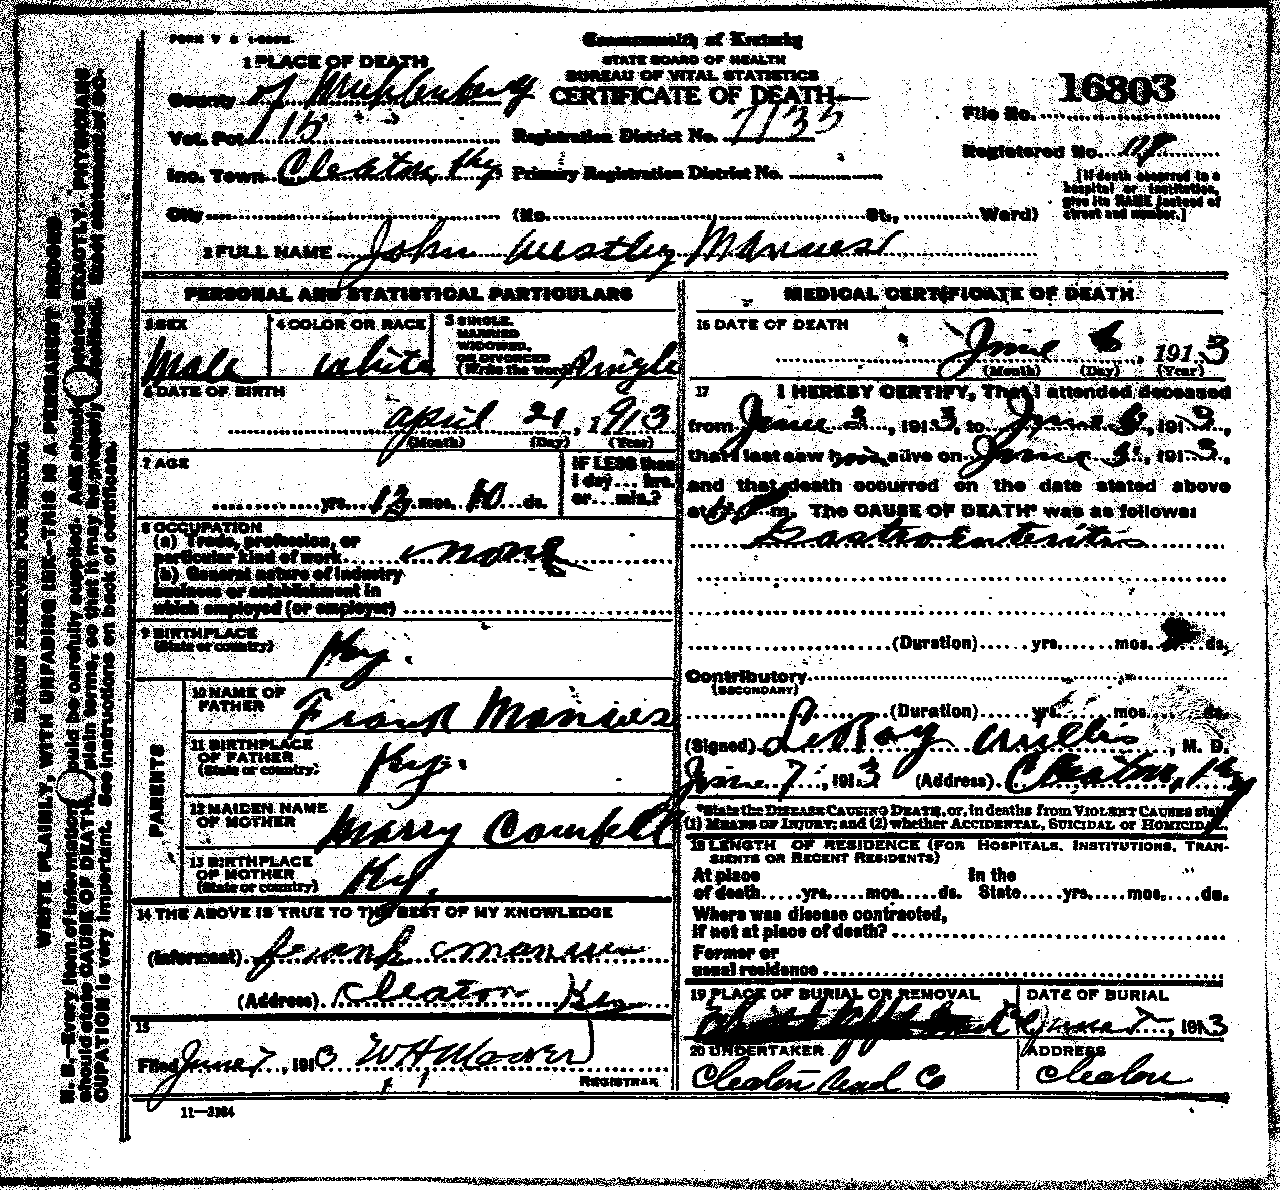 FORM V S 1-
Commonwealth of Kentucky
STATE BOARD OF HEALTH
BUREAU OF VITAL STATISTICS
CERTIFICATE OF DEATH
1 PLACE OF DEATH
County of Muhlenberg
Vot. Pct 115
Registration District No. 7135
Inc. Town Cleaton, Ky
Primary Registration District No.
City (No. St., Ward)
16803
File No.
Registered No. 98
[If death occurred in a
hospital or institution,
give its NAME instead of
street and number.]
2 FULL NAME John Westley Manues
PERSONAL AND STATISTICAL PARTICULARS
3 SEX
Male
4 COLOR OR RACE
White
5 SINGLE,
MARRIED
WIDOWED,
OR DIVORCED
(Write the word) Single
6 DATE OF BIRTH
April 21, 1913
(Month) (Day) (Year)
7 AGE
yrs. mos. ds.
IF LESS than
1 day... hrs.
or...min.?
8 OCCUPATION
(a) Trade, profession, or
particular kind of work none
(b) General nature of industry
business or establishment in
which employed (or employer)
9 BIRTHPLACE
(State or country) Ky.
PARENTS
10 NAME OF
FATHER Frank Manues
11 BIRTHPLACE
OF FATHER
(State or country) Ky.
12 MAIDEN NAME
OF MOTHER Marry Combell
13 BIRTHPLACE
OF MOTHER
(State or country) Ky.
14 THE ABOVE IS TRUE TO THE BEST OF MY KNOWLEDGE
(Informant) Frank Manues
(Address) Cleaton Ky
15
Filed June 7, 1913 W H Moover
REGISTRAR
11—3184
MEDICAL CERTIFICATE OF DEATH
16 DATE OF DEATH
June 6, 1913
(Month) (Day) (Year)
17 I HEREBY CERTIFY, That I attended deceased
from June 2, 1913, to June 6, 1913,
that I last saw him alive on June 5, 1913,
and that death occurred on the date stated above
at m. The CAUSE OF DEATH* was as follows:
Gastro Enteritis
(Duration) yrs. mos. ds.
Contributory
(SECONDARY)
(Duration) yrs. mos. ds.
(Signed) LeRoy Willis, M. D.
June 7, 1913 (Address) Cleaton, Ky
*State the DISEASE CAUSING DEATH, or, in deaths from VIOLENT CAUSES state
(1) MEANS OF INJURY; and (2) whether ACCIDENTAL, SUICIDAL or HOMICIDAL
18 LENGTH OF RESIDENCE (FOR HOSPITALS, INSTITUTIONS, TRAN-
SIENTS OR RECENT RESIDENTS)
At place In the
of death yrs. mos. ds. State yrs. mos. ds.
Where was disease contracted,
If not at place of death?
Former or
usual residence
19 PLACE OF BURIAL OR REMOVAL
DATE OF BURIAL
June 7, 1913
20 UNDERTAKER
ADDRESS
Cleaton Co
Cleaton
MARGIN RESERVED FOR BINDING
WRITE PLAINLY, WITH UNFADING INK—THIS IS A PERMANENT RECORD
N. B.—Every item of information should be carefully supplied. AGE should be stated EXACTLY. PHYSICIANS
should state CAUSE OF DEATH in plain terms, so that it may be properly classified. Exact statement of OC-
CUPATION is very important. See instructions on back of certificate.